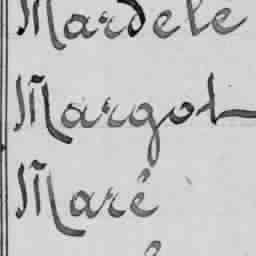 Mardele
Margot
Maré